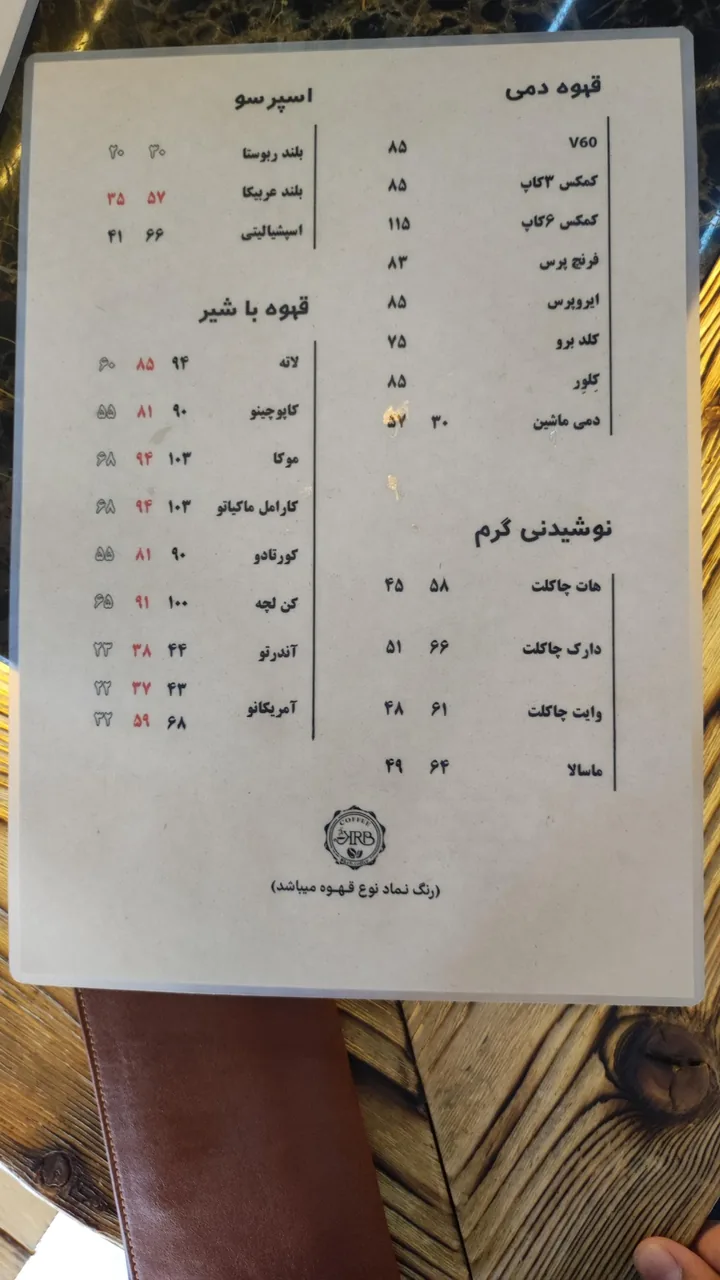 قهوه دمی
V60 ۸۵
کمکس ۳کاپ ۸۵
کمکس ۶کاپ ۱۱۵
فرنچ پرس ۸۳
ایروپرس ۸۵
کلد برو ۷۵
کِلوِر ۸۵
دمی ماشین ۳۰ ۵۷
نوشیدنی گرم
هات چاکلت ۵۸ ۴۵
دارک چاکلت ۶۶ ۵۱
وایت چاکلت ۶۱ ۴۸
ماسالا ۶۴ ۴۹
اسپرسو
بلند ربوستا ۳۰ ۲۰
بلند عربیکا ۵۷ ۳۵
اسپشیالیتی ۶۶ ۴۱
قهوه با شیر
لاته ۹۴ ۸۵ ۶۰
کاپوچینو ۹۰ ۸۱ ۵۵
موکا ۱۰۳ ۹۴ ۶۸
کارامل ماکیاتو ۱۰۳ ۹۴ ۶۸
کورتادو ۹۰ ۸۱ ۵۵
کن لچه ۱۰۰ ۹۱ ۶۵
آندرتو ۴۴ ۳۸ ۲۳
آمریکانو ۴۳ ۳۷ ۲۲
۶۸ ۵۹ ۳۲
COFFEE
(رنگ نماد نوع قهوه میباشد)